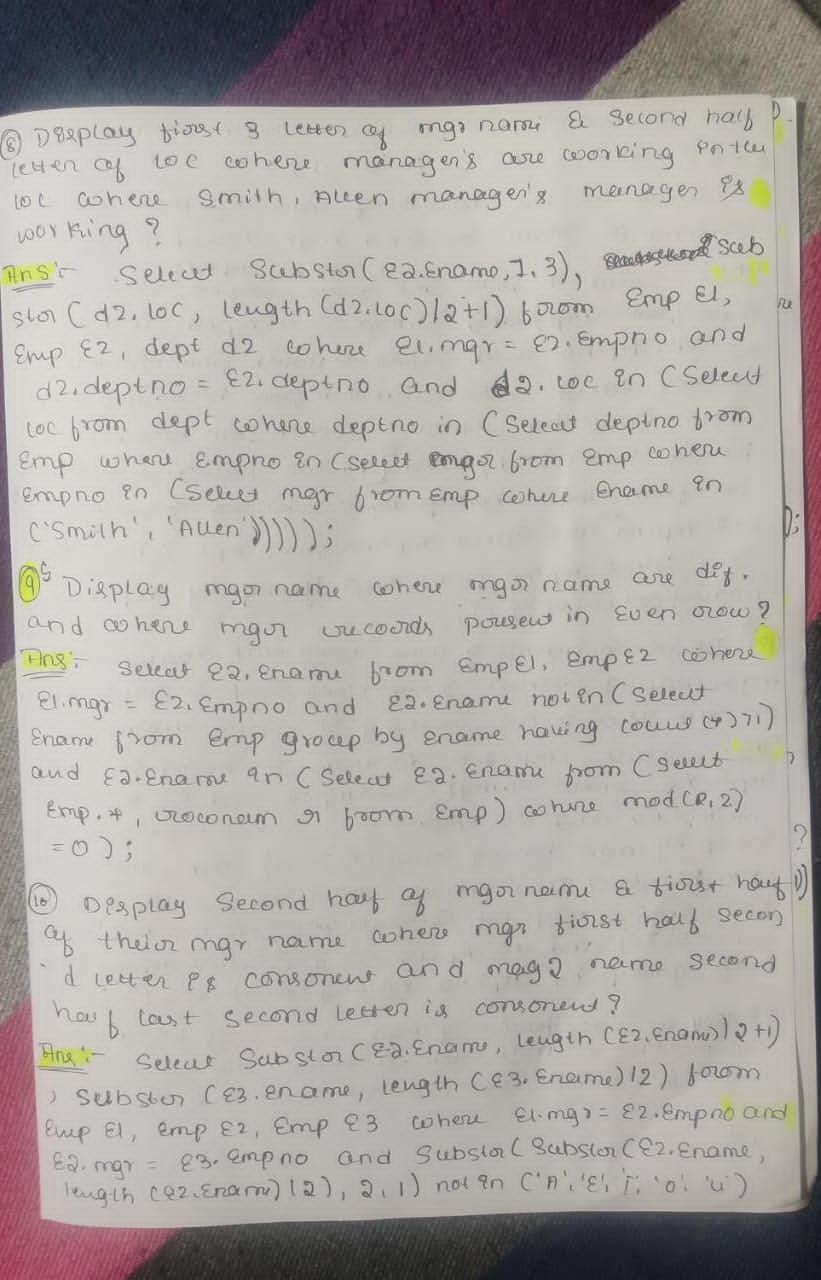 ⑧ Display first 3 letter of mgr name & second half
letter of loc where manager's are working in the
loc where smith, Allen manager's manager is
working ?
Ans:- Select Substr(E2.Ename,1,3), Sub
str(d2.loc, length(d2.loc)/2+1) from Emp E1,
Emp E2, dept d2 where E1.mgr = E2.Empno and
d2.deptno = E2.deptno and d2.loc in (Select
loc from dept where deptno in (Select deptno from
Emp where Empno in (select mgr from Emp where
Empno in (Select mgr from Emp where Ename in
('Smith', 'Allen')))));
9 Display mgr name where mgr name are dif.
and where mgr records present in Even row ?
Ans:- Select E2.Ename from Emp E1, Emp E2 where
E1.mgr = E2.Empno and E2.Ename not in (Select
Ename from Emp group by ename having count(*)>1)
and E2.Ename in (Select E2.Ename from (select
Emp.*, rownum r from Emp) where mod(r,2)
=0);
⑩ Display Second half of mgr name & first half
of their mgr name where mgr first half secon
d letter is consonent and name second
half last second letter is consonent ?
Ans:- Select Substr(E2.Ename, length(E2.Ename)/2+1)
, Substr(E3.ename, length(E3.Ename)/2) from
Emp E1, Emp E2, Emp E3 where E1.mgr = E2.Empno and
E2.mgr = E3.Empno and Substr(Substr(E2.Ename,
length(E2.Ename)/2), 2,1) not in ('A','E','I','o','u')